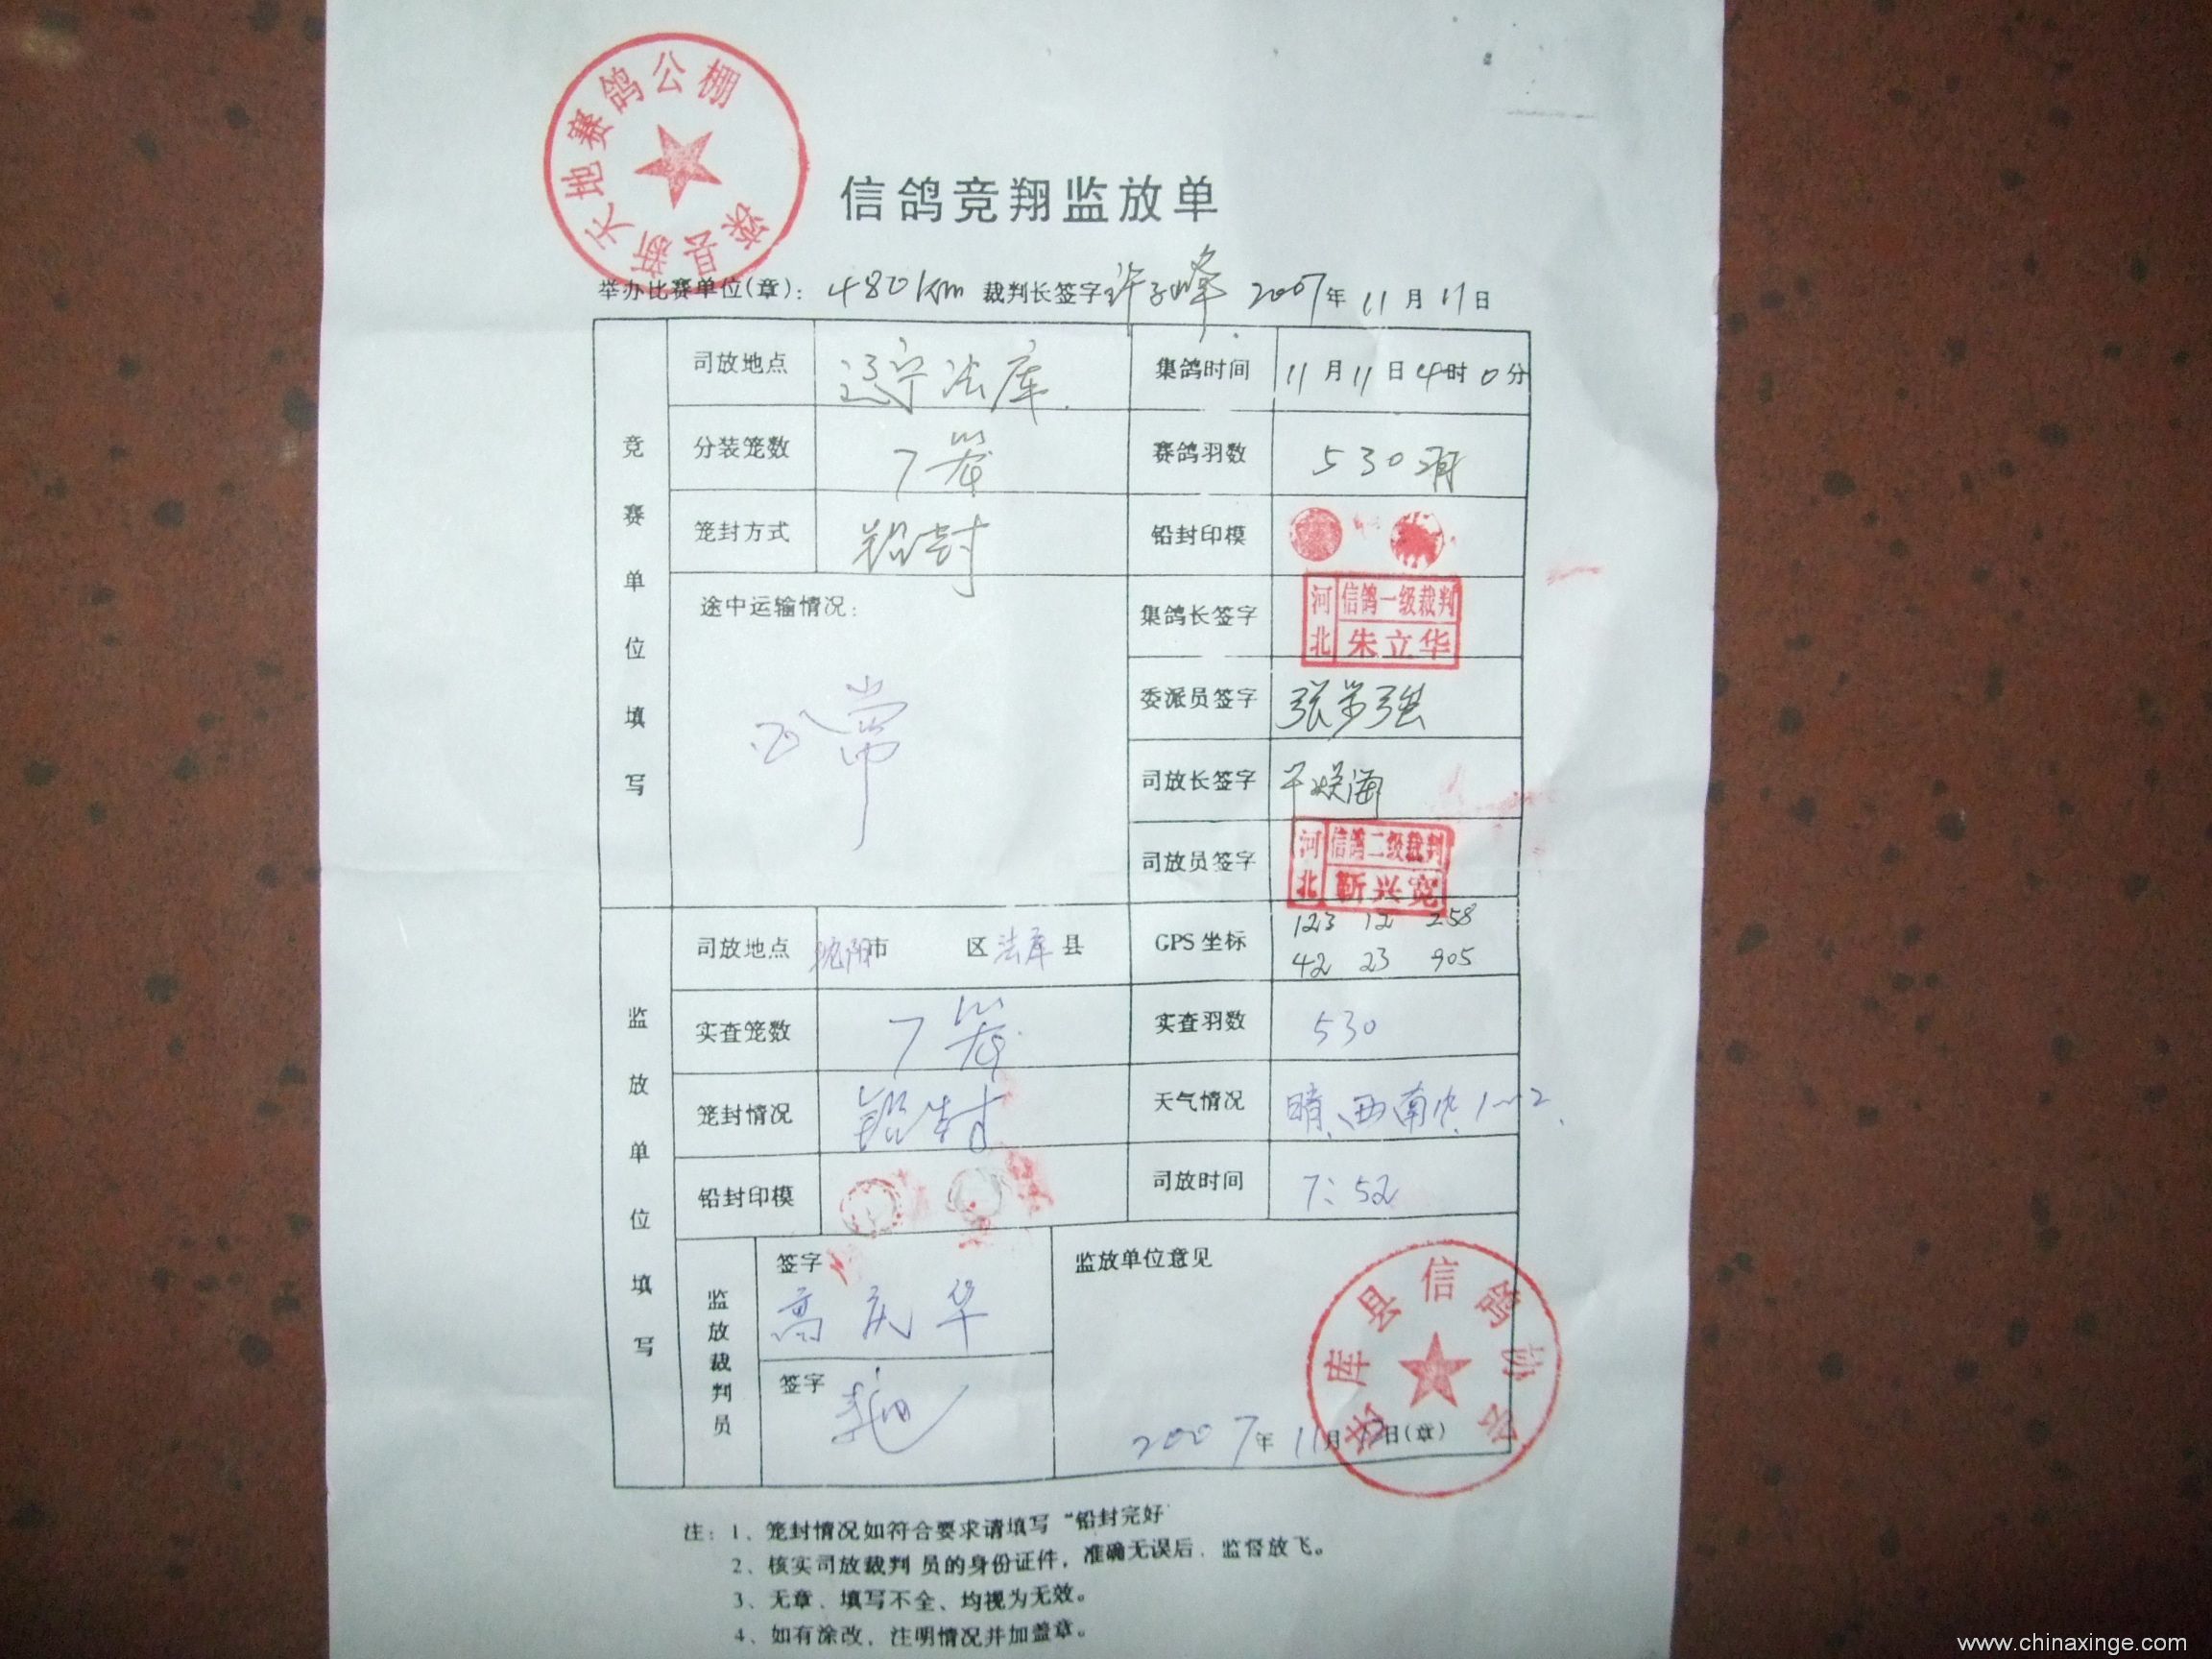 滦县新天地赛鸽公棚
信鸽竞翔监放单
举办比赛单位(章): 480km 裁判长签字 2007年 11月 11日
竞赛单位填写
司放地点 辽宁法库 集鸽时间 11月11日4时0分
分装笼数 7笼 赛鸽羽数 530羽
笼封方式 铅封 铅封印模
途中运输情况: 正常
集鸽长签字 河北 信鸽一级裁判 朱立华
委派员签字
司放长签字
司放员签字 河北 信鸽二级裁判 靳兴宽
监放单位填写
司放地点 沈阳市 区 法库县 GPS坐标 123 12 258
42 23 905
实查笼数 7笼 实查羽数 530
笼封情况 铅封 天气情况 晴、西南
铅封印模 司放时间 7:52
监放裁判员
签字 高庆华
签字
监放单位意见
法库县信鸽协会
2007年 11月 12日(章)
注: 1、笼封情况如符合要求请填写“铅封完好
2、核实司放裁判 员的身份证件，准确无误后、监督放飞。
3、无章、填写不全、均视为无效。
4、如有涂改，注明情况并加盖章。
www.chinaxinge.com